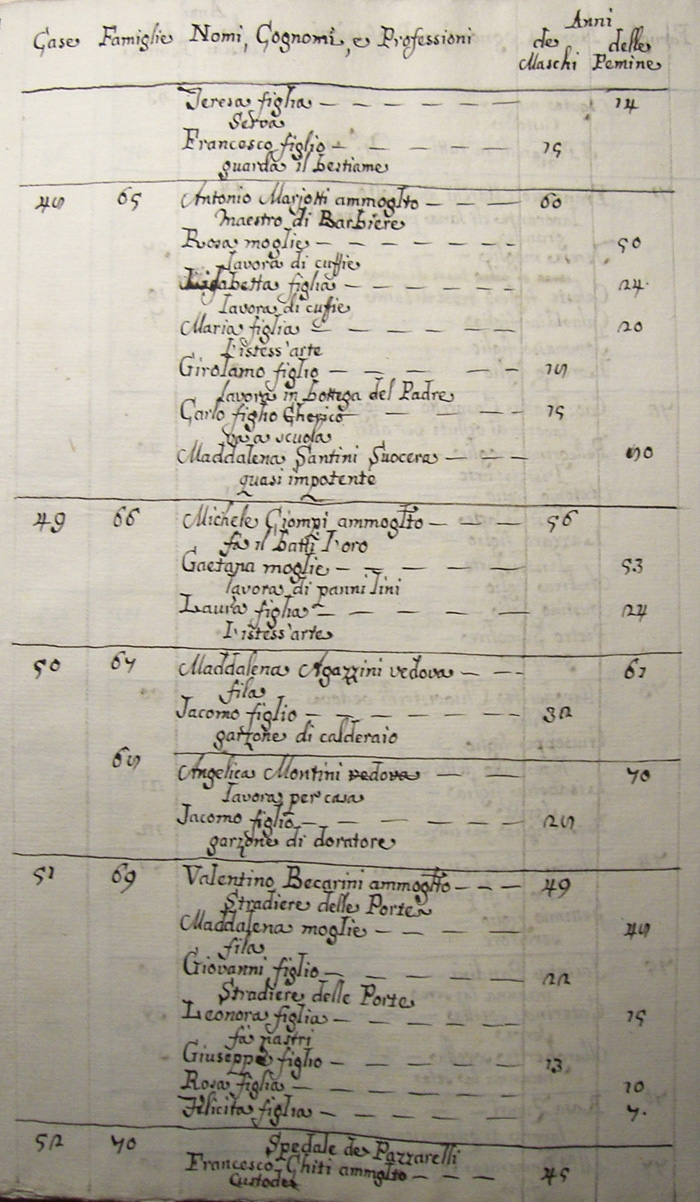 Anni
Case Famiglie Nomi, Cognomi, e Professioni de delle
Maschi Femine
Teresa figlia — — — — — — 14
Serva
Francesco figlio — — — — — 15
guarda il bestiame
48 65 Antonio Mariotti ammogl.to — — — 60
Maestro di Barbiere
Rosa moglie — — — — — — 50
lavora di cuffie
Lisabetta figlia — — — — — 24
lavora di cufie
Maria figlia — — — — — — 20
l'istess'arte
Girolamo figlio — — — — — 18
lavora in bottega del Padre
Carlo figlio Cherico — — — — 15
va a scuola
Maddalena Santini Suocera — — — 80
quasi impotente
49 66 Michele Ciompi ammogl.to — — — 56
fa il batti l'oro
Gaetana moglie — — — — — 53
lavora di panni lini
Laura figlia — — — — — — 24
l'istess'arte
50 67 Maddalena Agazzini vedova — — - 61
fila
Jacomo figlio — — — — — — 32
garzone di calderaio
68 Angelica Montini vedova — — — 70
lavora per casa
Jacomo figlio — — — — — — 28
garzone di doratore
51 69 Valentino Becarini ammogl.to — — — 49
Stradiere delle Porte
Maddalena moglie — — — — 48
fila
Giovanni figlio — — — — — 22
Stradiere delle Porte
Leonora figlia — — — — — 15
fa nastri
Giuseppe figlio — — — — — 13
Rosa figlia — — — — — — 10
Felicita figlia — — — — — 7.
52 70 Spedale de Pazzarelli
Francesco Ghiti ammogl.to — — — 45
Custode